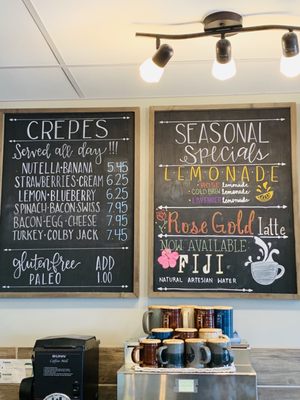 CREPES
Served all day!!!
NUTELLA·BANANA 5.45
STRAWBERRIES·CREAM 6.25
LEMON·BLUEBERRY 6.25
SPINACH·BACON·SWISS 7.95
BACON·EGG·CHEESE 7.95
TURKEY·COLBY JACK 7.45
gluten free ADD
& PALEO 1.00
SEASONAL
Specials
LEMONADE
Lemonade
COLD BREW Lemonade
LAVENDER Lemonade
Rose Gold Latte
NOW AVAILABLE
FIJI
NATURAL ARTESIAN WATER
BUNN